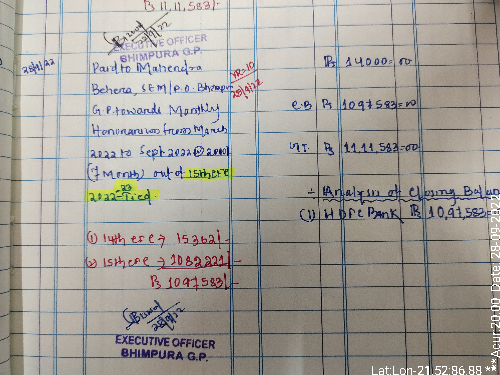 ₨ 11,11,583/-
28/9/22
EXECUTIVE OFFICER
BHIMPURA G.P.
28/9/22
Paid to Mahendra
Behera, SEM/P.O. Bhimpur
G.P. towards Monthly
Honorarium from March
2022 to Sept 2022 @ 2000/-
(7 Month) out of 15th cfc
2022-23 Tied.
VR-10
28/9/22
₨ 14000=00
C.B ₨ 1097583=00
GT. ₨ 11,11,583=00
∴ Analysis of Closing Balan
(1) HDFC Bank ₨ 10,97,583=00
(1) 14th cfc → 15362/-
(2) 15th cfc → 1082221/-
₨ 1097583/-
28/9/22
EXECUTIVE OFFICER
BHIMPURA G.P.
Lat:Lon-21.52:86.88 ***Acur:20.00 Date: 28-09-2022